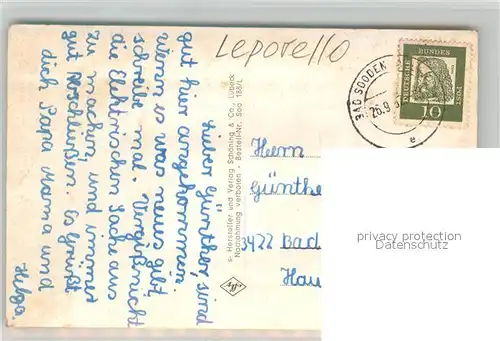 Leporello
Lieber Günther, sind
gut hier angekommen.
Wenn es was neues gibt,
schreibe mal. Vergiß nicht
die Elektrischen Sach aus
zu machen, und immer
gut Abschließen. Es Grüßt
dich Papa Mama und
Helga.
S- Hersteller und Verlag Schöning & Co., Lübeck
Nachahmung verboten - Bestell-Nr. Soo 188/L
BAD SOODEN
26.9.
e
DEUTSCHE
BUNDES
POST
10
Herrn
Günthe
3422 Bad
Hau
privacy protection
Datenschutz